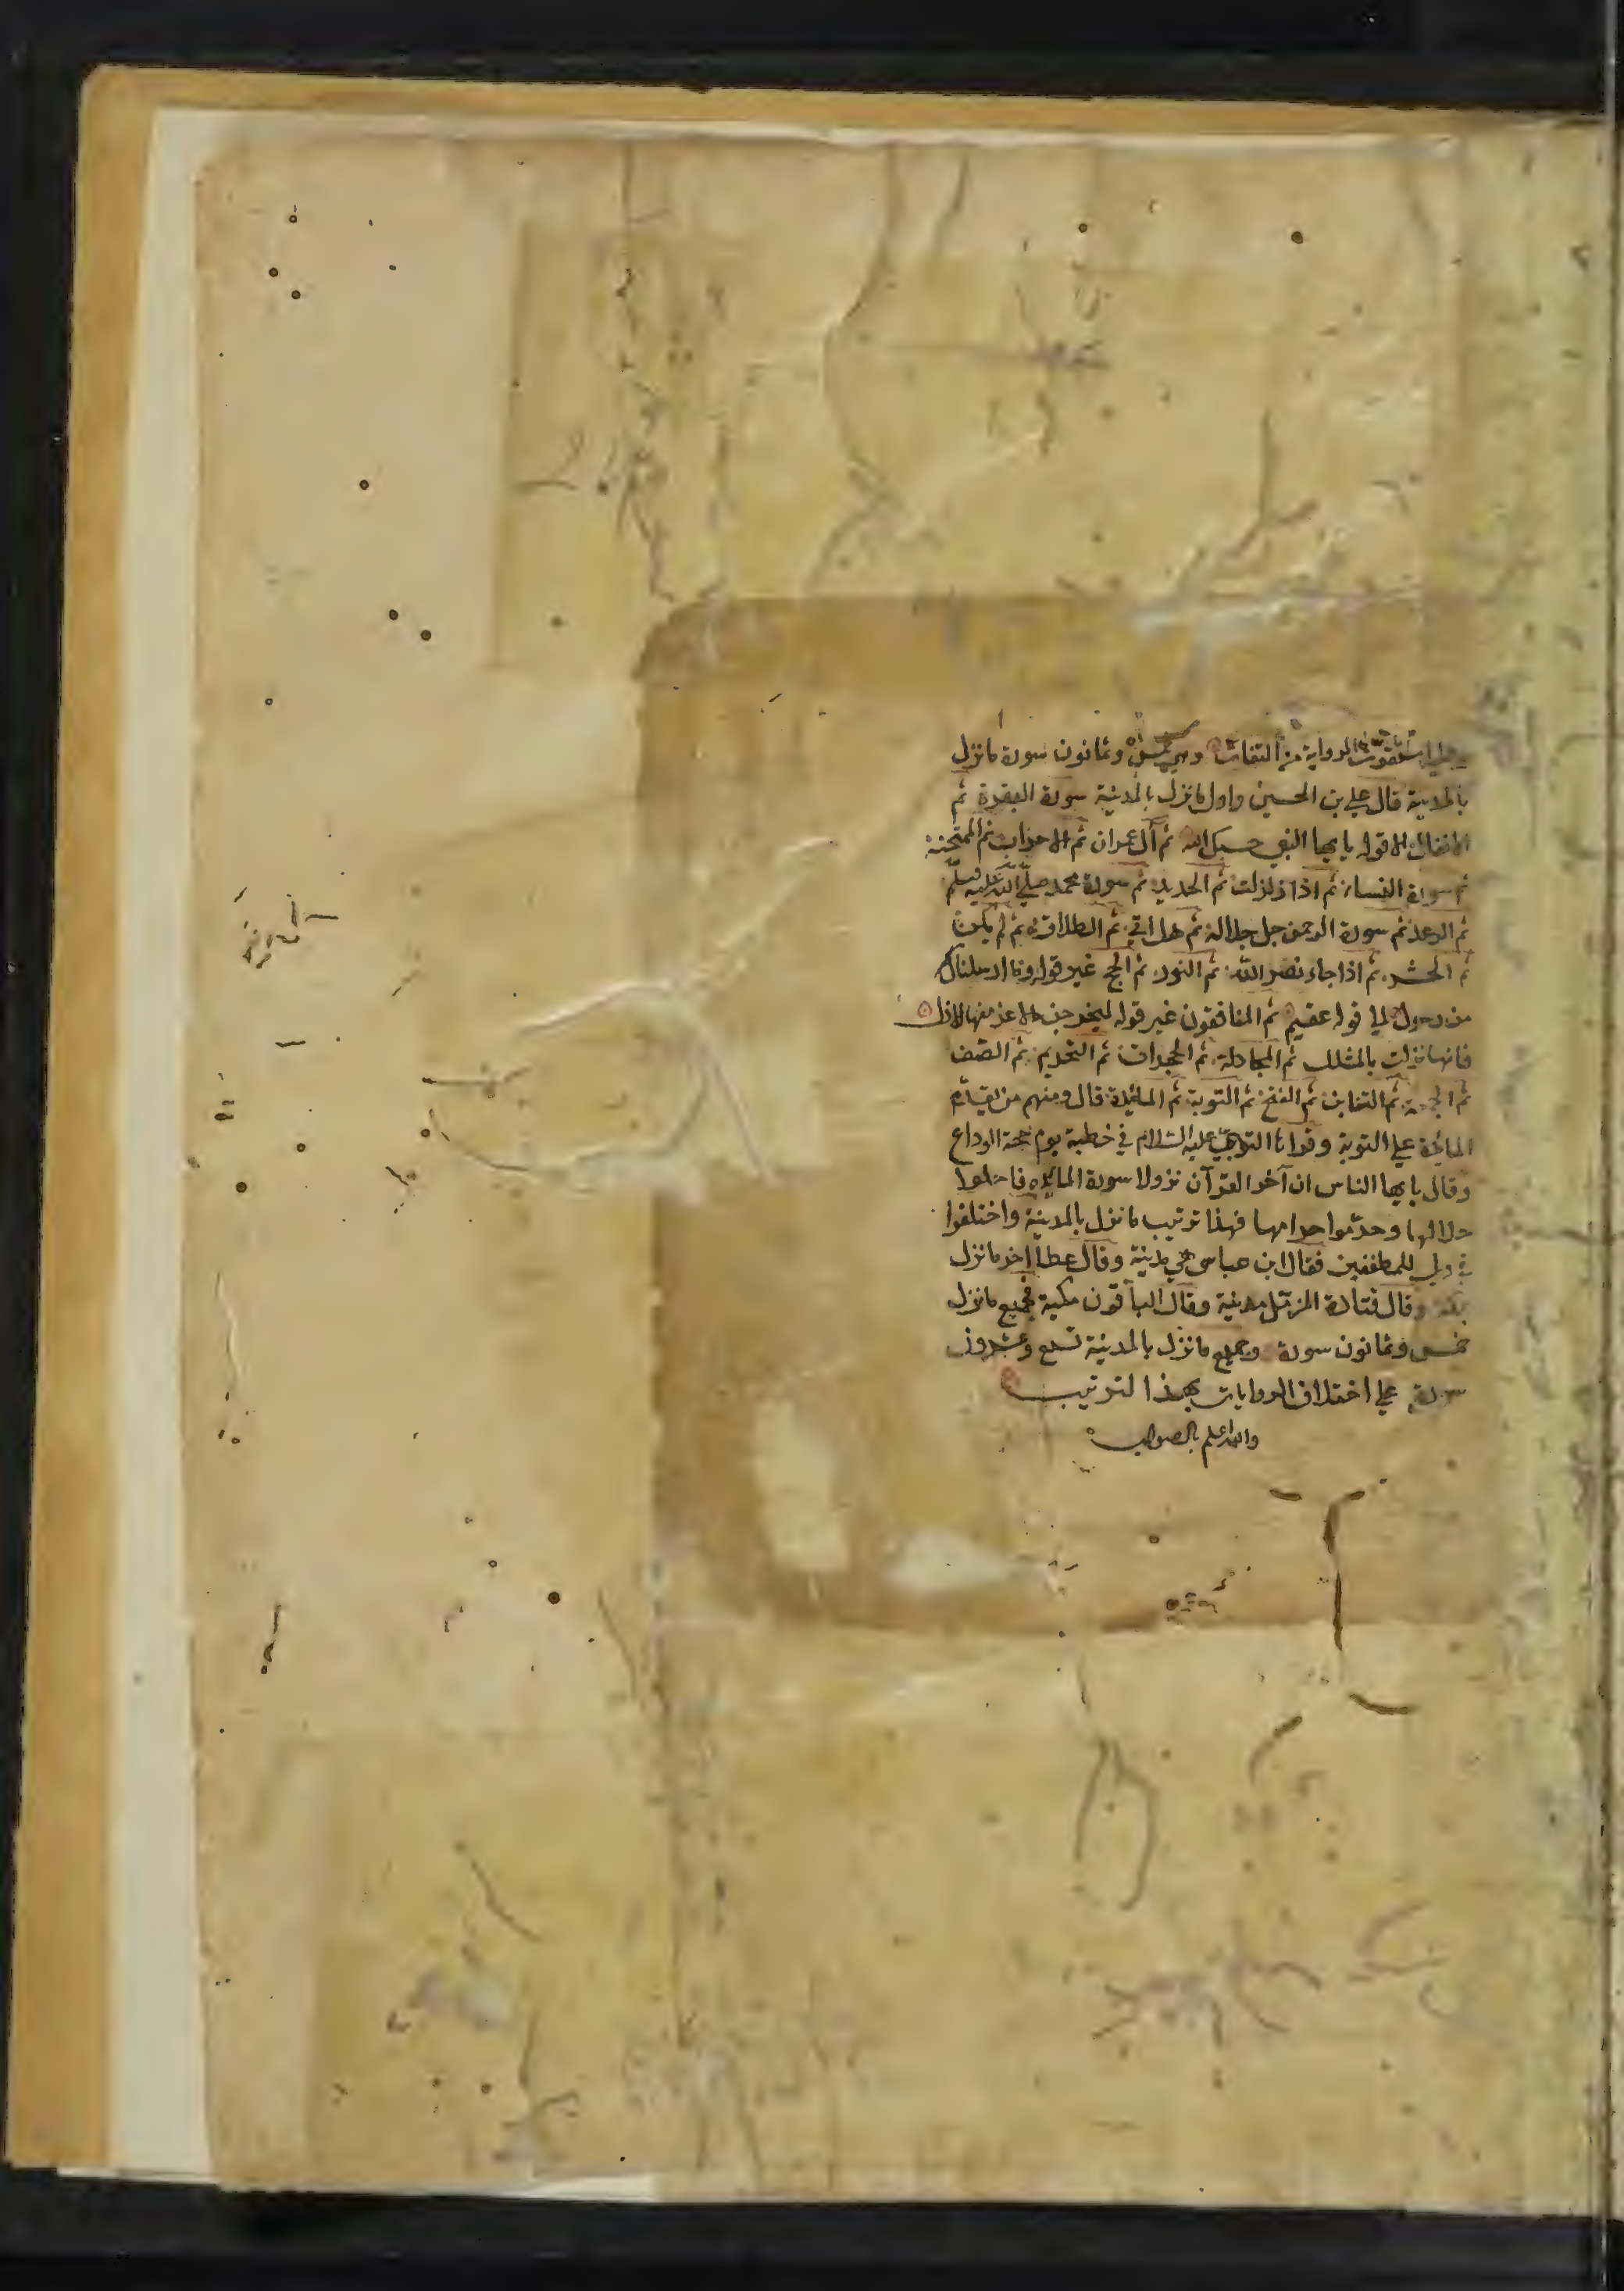 استقرت الرواية من الثقات وهي خمس وثمانون سورة ما نزل
بالمدينة قال علي بن الحسين واول ما نزل بالمدينة سورة البقرة ثم
الانفال الا قوله يايها النبي حسبك الله ثم آل عمران ثم الاحزاب ثم الممتحنة
ثم سورة النساء ثم اذا زلزلت ثم الحديد ثم سورة محمد صلى الله عليه وسلم
ثم الرعد ثم سورة الرحمن جل جلاله ثم هل اتى ثم الطلاق ثم لم يكن
ثم الحشر ثم اذا جاء نصر الله ثم النور ثم الحج غير قوله وما ارسلناك
من رسول الى قوله عقيم ثم المنافقون غير قوله ليخرجن الاعز منها الاذل
فانها نزلت ثم المجادلة ثم الحجرات ثم التحريم ثم الصف
ثم الجمعة ثم التغابن ثم الفتح ثم التوبة ثم المائدة قال ومنهم من يقدم
المائدة على التوبة وقرا النبي عليه السلام في خطبة يوم حجة الوداع
وقال يايها الناس ان آخر القرآن نزولا سورة المائده فاحلوا
حلالها وحرّموا حرامها فهذا ترتيب ما نزل بالمدينة واختلفوا
في ويل للمطففين فقال ابن عباس هي مدينة وقال عطا اخر ما نزل
بمكة وقال قتادة المزمّل مدينة وقال الباقون مكية فجميع ما نزل
خمس وثمانون سورة وجميع ما نزل بالمدينة تسع وعشرون
سورة على اختلاف الروايات بهذا الترتيب
والله اعلم بالصواب